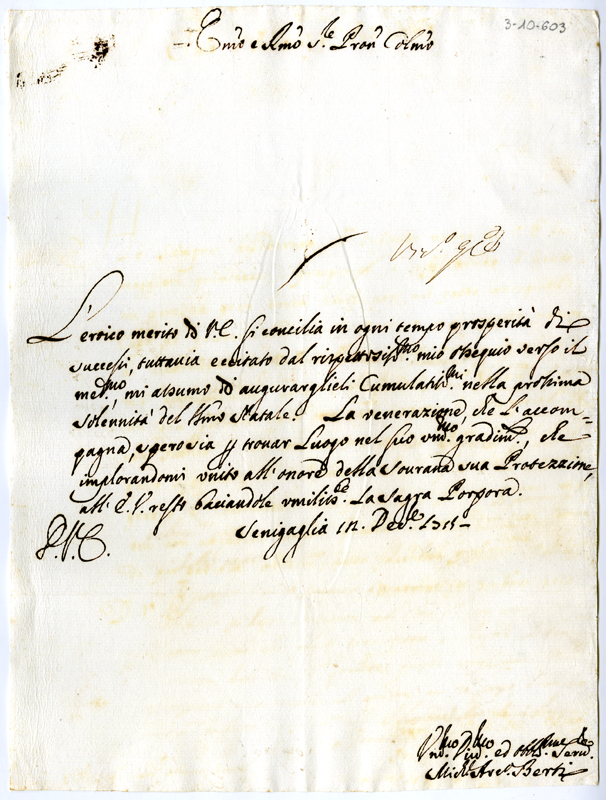 3-10-603
Emo e Rmo Sre Pron Colmo
L'eroico merito di V.E. si concilia in ogni tempo prosperità di
successi, tuttavia eccitato dal rispettosissmo mio ossequio verso il
medmo, mi assumo di augurarglieli Cumulatissmi nella prossima
solennità del Smo Natale. La venerazione, che l'accom=
pagna, spero sia p trovar Luogo nel suo gradimo, che
implorandomi unito all'onore della sovrana sua Protezzione,
all' E.V. resto baciandole umilmte La Sagra Porpora.
Senigaglia 12. Decre 1715
D.V.E.
Umo Dmo ed Obblmo Serve
Michel Arco Berti